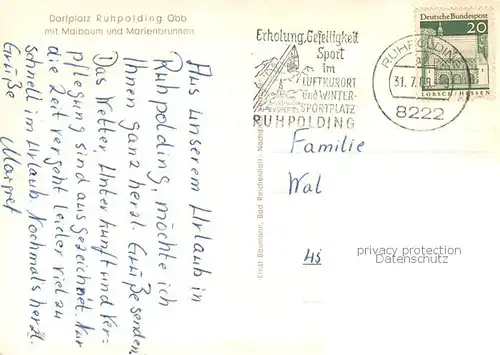 Dorfplatz Ruhpolding Obb.
mit Maibaum und Marienbrunnen
Aus unserem Urlaub in
Ruhpolding, möchte ich
Ihnen ganz herzl. Grüße senden.
Das Wetter, Unterkunft und Ver-
pflegung sind ausgezeichnet. Nur
die Zeit vergeht leider viel zu
schnell im Urlaub. Nochmals herzl.
Grüße
Margret
Ernst Baumann, Bad Reichenhall - Nachdr
Erholung, Geselligkeit
Sport
im
LUFTKURORT
und WINTER-
SPORTPLATZ
RUHPOLDING
RUHPOLDING
31.7.68
8222
Deutsche Bundespost
20
LORSCH/HESSEN
Familie
Wal
45
privacy protection
Datenschutz